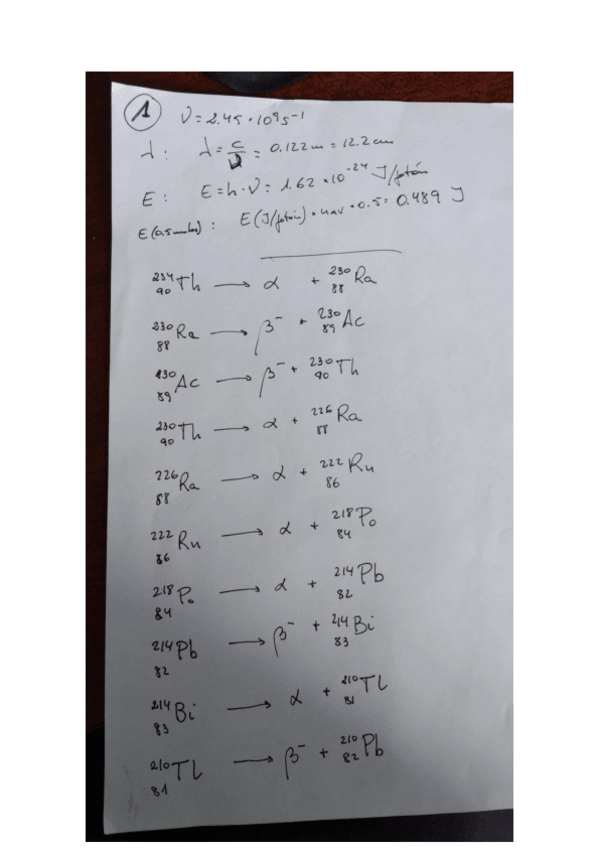 1 ν = 2.45 · 10⁹ s⁻¹
λ : λ = c/ν = 0.122 m = 12.2 cm
E : E = h · ν = 1.62 · 10⁻²⁴ J/fotón
E (0.5 moles) : E (J/fotón) · nav · 0.5 = 0.489 J
²³⁴₉₀Th → α + ²³⁰₈₈Ra
²³⁰₈₈Ra → β⁻ + ²³⁰₈₉Ac
²³⁰₈₉Ac → β⁻ + ²³⁰₉₀Th
²³⁰₉₀Th → α + ²²⁶₈₈Ra
²²⁶₈₈Ra → α + ²²²₈₆Rn
²²²₈₆Rn → α + ²¹⁸₈₄Po
²¹⁸₈₄Po → α + ²¹⁴₈₂Pb
²¹⁴₈₂Pb → β⁻ + ²¹⁴₈₃Bi
²¹⁴₈₃Bi → α + ²¹⁰₈₁Tl
²¹⁰₈₁Tl → β⁻ + ²¹⁰₈₂Pb